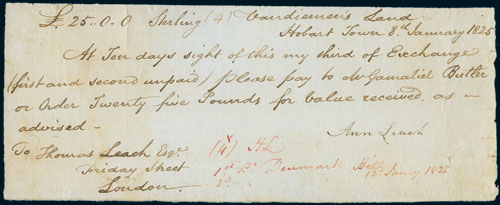 £ 25..0..0 Sterling (4) Vandiemen's Land
Hobart Town 8th January 1825
At Ten days sight of this my third of Exchange
(first and second unpaid) Please pay to Mr Gamaliel Butler
or Order Twenty five Pounds for Value received as
advised —
Ann Leach
To Thomas Leach Esqr.
Friday Street
London.
(4) A L
1st Pr Denmark Hill
2nd " 12 Jany 1825